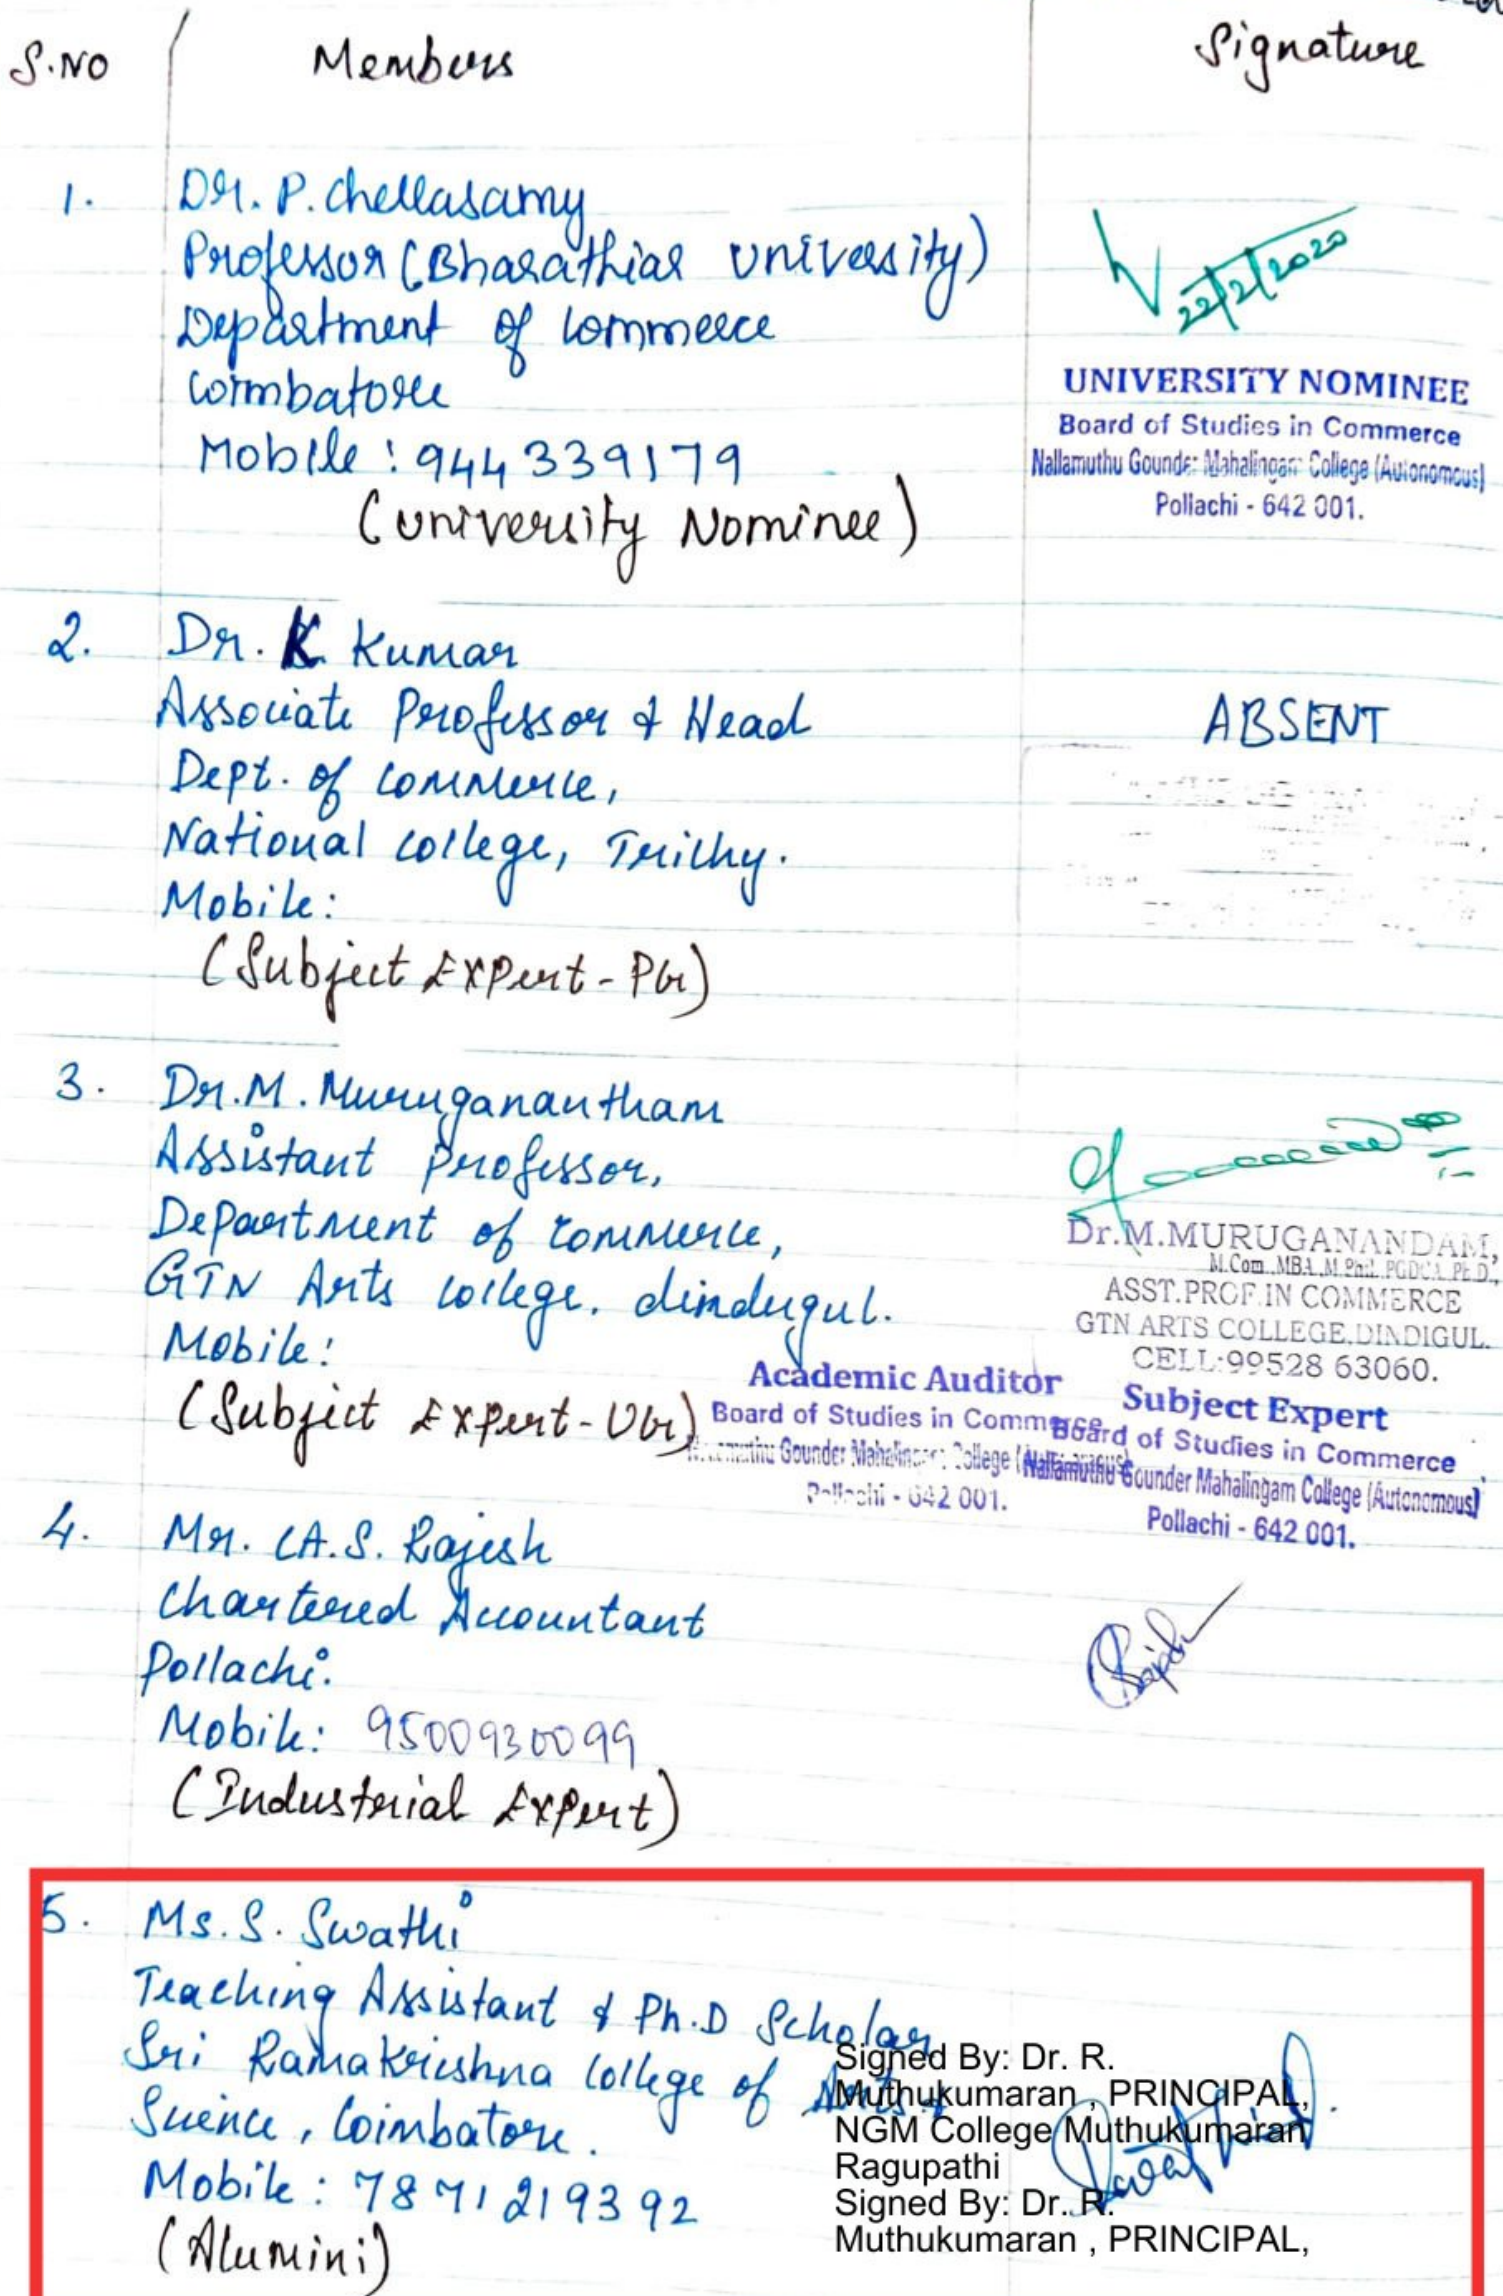 S.NO Members Signature
1. Dr. P. Chellasamy
Professor (Bharathiar University)
Department of Commerce
Coimbatore
Mobile : 944339179
(University Nominee)
22/2/2020
UNIVERSITY NOMINEE
Board of Studies in Commerce
Nallamuthu Gounder Mahalingam College (Autonomous)
Pollachi - 642 001.
2. Dr. K. Kumar
Associate Professor & Head
Dept. of Commerce,
National College, Trichy.
Mobile:
(Subject Expert - PG)
ABSENT
3. Dr. M. Muruganantham
Assistant Professor,
Department of Commerce,
GTN Arts College. dindugul.
Mobile:
(Subject Expert - UG)
Dr.M.MURUGANANDAM,
M.Com.,MBA.,M.Phil.,PGDCA.,Ph.D.,
ASST.PROF.IN COMMERCE
GTN ARTS COLLEGE,DINDIGUL.
CELL:99528 63060.
Academic Auditor
Board of Studies in Commerce
Gounder Mahalingam College
Pollachi - 642 001.
Subject Expert
Board of Studies in Commerce
Nallamuthu Gounder Mahalingam College (Autonomous)
Pollachi - 642 001.
4. Mr. CA. S. Rajesh
Chartered Accountant
Pollachi.
Mobile: 9500930099
(Industrial Expert)
5. Ms. S. Swathi
Teaching Assistant & Ph.D Scholar
Sri Ramakrishna College of Arts &
Science, Coimbatore.
Mobile : 7871219392
(Alumini)
Signed By: Dr. R.
Muthukumaran , PRINCIPAL,
NGM College Muthukumaran
Ragupathi
Signed By: Dr. R.
Muthukumaran , PRINCIPAL,